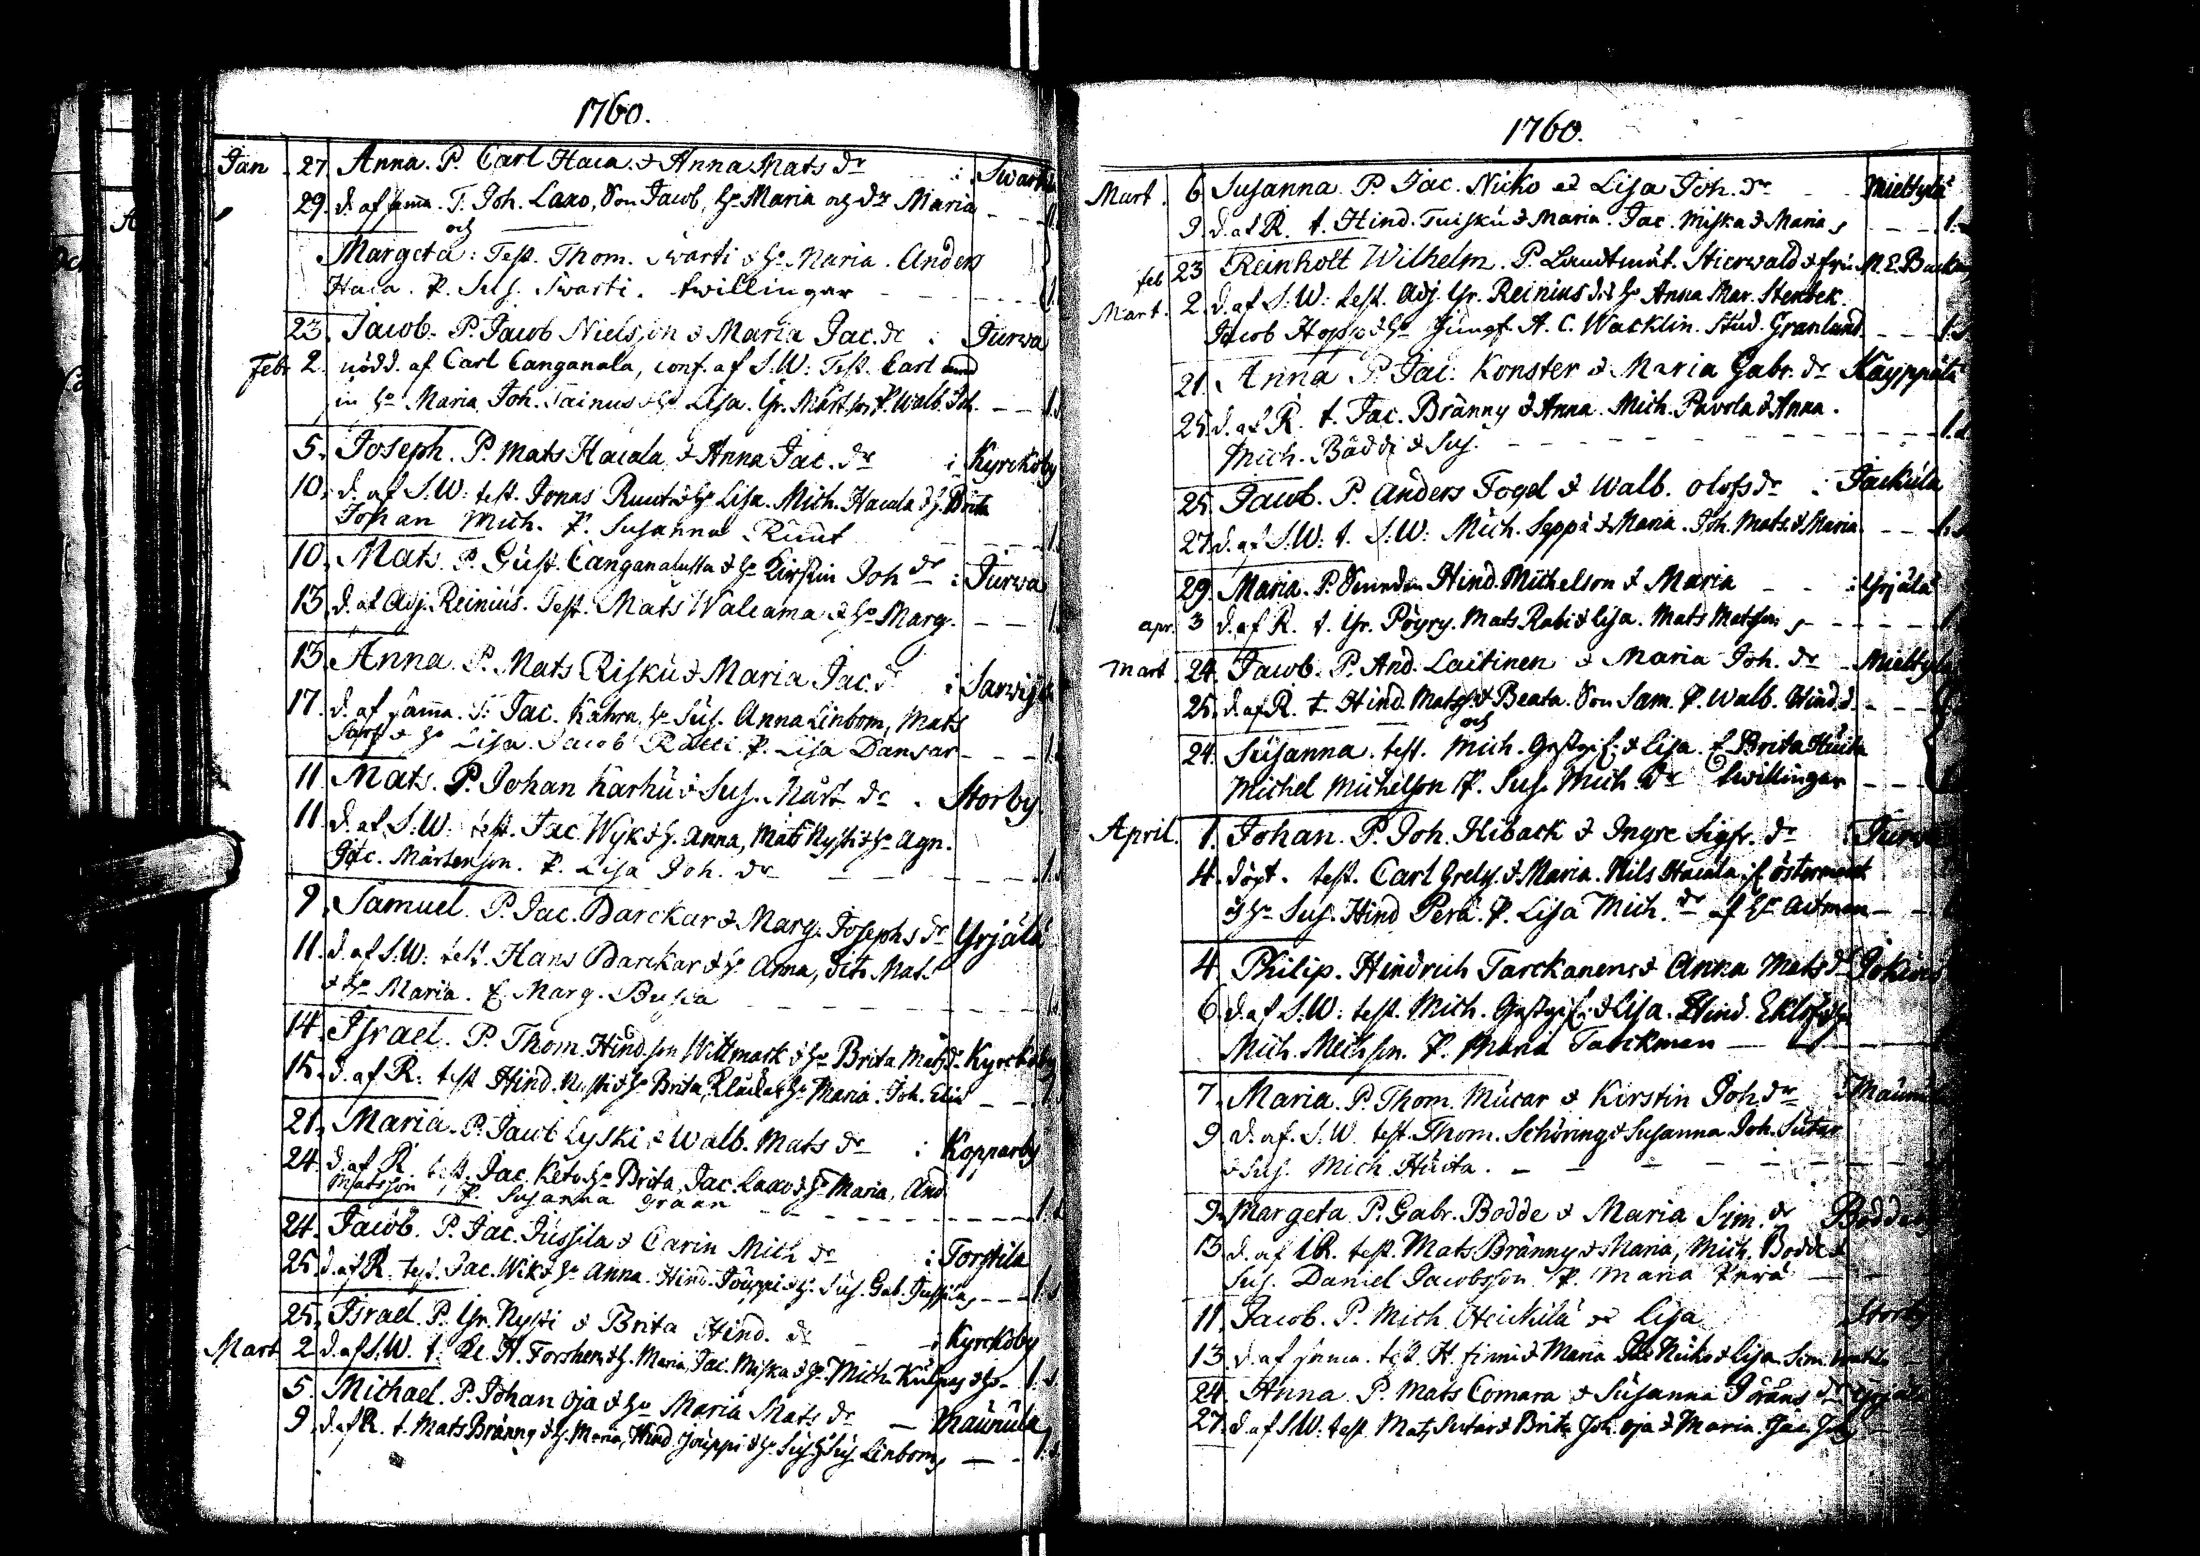 1760.
Jan 27. Anna. P. Carl Haca & Anna Mats dr i Swart
29. d. af samma. T. Joh. Laxo, Son Jacob, h. Maria och dr Maria
och
Margeta: Test. Thom. Swarti & h. Maria. Anders
Haca. P. Sus. Swarti. twillingar
23. Jacob. P. Jacob Nielsson & Maria Jac. dr i Turwa
Febr. 2. nödd. af Carl Canganala, conf. af S.W: Test. Carl
h. Maria, Joh. Tainus & h. Lisa. Gr. P. Walb. Joh.
5. Joseph. P. Mats Hacala & Anna Jac. dr i Kyrckoby
10. d. af S.W: test. Jonas Ruut & h. Lisa. Mich. Hacala & h. Brita
Johan Mich. P. Susanna Ruut
10. Mats. P. Gust. Canganalusta & h. Kirstin Joh dr i Turwa
13. d. af Adj. Reinius. Test. Mats Waleama & h. Marg.
13. Anna. P. Mats Risku & Maria Jac. dr i Sarwi
17. d. af samma. T: Jac. Kahra, h. Sus. Anna Linbom, Mats
& h. Lisa. Jacob P. Lisa Dansar
11 Mats. P. Johan Karhu & Sus. Mårt dr Storby
11. d. af S.W: test. Jac. Wijk & h. Anna, Mats Nysti & h. Agn.
Jac. Mårtenson. P. Lisa Joh. dr
9. Samuel. P. Jac. Barckar & Marg. Josephs dr Yrjälä
11. d. af S.W: test. Hans Barckar & h. Anna, Mat.
& h. Maria. P. Marg.
14. Israel. P. Thom. Hind. son Wittmack & h. Brita Mats dr Kyrckoby
15. d. af R: test Hind. Nysti & h. Brita, & h. Maria. Joh.
21. Maria. P. Jacob Lyski & Walb. Mats dr i Kopparby
24. d. af R. test. Jac. Keto & h. Brita, Jac. Laxo & h. Maria, And.
Matsson, P. Susanna Graan
24. Jacob. P. Jac. Jussila & Carin Mich dr i Torstila
25. d. af R. test. Jac. Wik & h. Anna. Hind. Jouppi & h. Sus. Gab. Jussila
25. Israel. P. Gr. Nysti & Brita Hind. dr i Kyrckoby
Mart 2 d. af S.W. t. H. Forshen & h. Maria, Jac. Miska & h. Mich. & h.
5. Michael. P. Johan Oja & h. Maria Mats dr Maunula
9. d. af R. t. Mats Bränny & h. Maria, Hind Jouppi & h. Sus Sus. Linbom
1760.
Mart. 6. Susanna. P. Jac. Nicko et Lisa Joh. dr Miettylä
9. d. af R. t. Hind. Tuisku & Maria. Jac. Miska & Maria
feb 23 Reinholt Wilhelm. P. Landtmät. Stierwald & fru M. E. Back
Mart. 2. d. af S.W: test. Adj. Gr. Reinius & h. Anna Mar. Stenbek.
Jacob & h. Jungf. A. C. Wacklin. Stud. Granlund
21. Anna P. Jac. Konster & Maria Gabr. dr Käyppälä
25. d. af R. t. Jac. Bränny & Anna. Mich. Pavola & Anna.
Mich. Bäddi & Sus.
25. Jacob. P. Anders Fogel & Walb. Olofs dr i Jackula
27. d. af S.W: t. S.W: Mich. Seppä & Maria. Joh. Mats. & Maria
29. Maria. P. Hind. Michelson & Maria i Yrjälä
apr. 3 d. af R. t. Gr. Pöyry. Mats Rabi & Lisa. Mats Matsson
Mart 24. Jacob. P. And. Laitinen & Maria Joh. dr Miettylä
25. d. af R. t. Hind. Mats. & Beata. Son Sam. P. Walb. Hind. d.
och
24. Susanna. test. Mich. Gästgif. & Lisa. Brita Huita
Michel Michelson P. Sus. Mich. dr twillingar
April. 1. Johan. P. Joh. Hiback & Ingre Sigfr. dr Turwa
4. döpt. test. Carl Grels. & Maria. Nils Hacala, Östermark
& h. Sus. Hind Perä. P. Lisa Mich. dr
4 Philip. Hindrich Tarckanen & Anna Mats dr Jokina
6. d. af S.W: test. Mich. Gästgif. & Lisa. Hind. Eklöf & h.
Mich. Michson. P. Maria Tarckman
7. Maria. P. Thom. Mucar & Kirstin Joh. dr Maunula
9 d. af. S.W. test. Thom. Schöring & Susanna Joh. Sutar
& Sus. Mich. Huita.
9. Margeta P. Gabr. Bodde & Maria Sim. dr Boddeby
13. d. af R. test. Mats Bränny & Maria, Mich. Bodde &
Sus. Daniel Jacobsson P. Maria Perä
11. Jacob. P. Mich. Heickilä et Lisa Storby
13. d. af samma. test. H. Finni & Maria Nicko & Lisa. Sim.
24. Anna P. Mats Comara & Susanna Iörans dr Yrjälä
27. d. af S.W: test. Mats Sutar & Brita Joh. Oja & Maria. Jac.